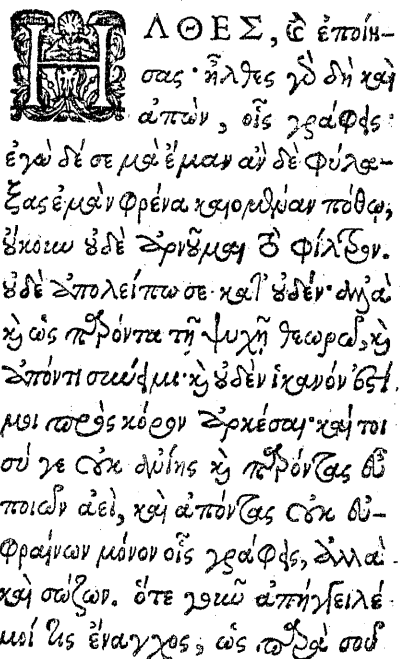 ΗΛΘΕΣ, καὶ ἐποίη-
σας· ἦλθες γὸ δὴ καὶ
ἀπὼν, οἷς γράφεις·
ἐγὼ δέ σε μὰ ἔμαν ἂν δὲ φύλα-
ξας ἐμὰν φρένα καιομέναν πόθῳ,
οὔκουν οὐδὲ ἀρνοῦμαι τὸ φίλτρον.
οὐδὲ ἀπολείπω σε κατ' οὐδέν· ἀλλὰ
καὶ ὡς παρόντα τῇ ψυχῇ θεωρῶ, καὶ
ἀπόντι σύνειμι· καὶ οὐδὲν ἱκανόν ἐστί
μοι πρὸς κόρον ἀρκέσαι· καίτοι
σύ γε οὐκ ἀνίης καὶ παρόντας εὖ
ποιῶν ἀεὶ, καὶ ἀπόντας οὐκ εὐ-
φραίνων μόνον οἷς γράφεις, ἀλλὰ
καὶ σώζων. ὅτε γοῦν ἀπήγγειλέ
μοί τις ἔναγχος, ὡς παρὰ σοῦ